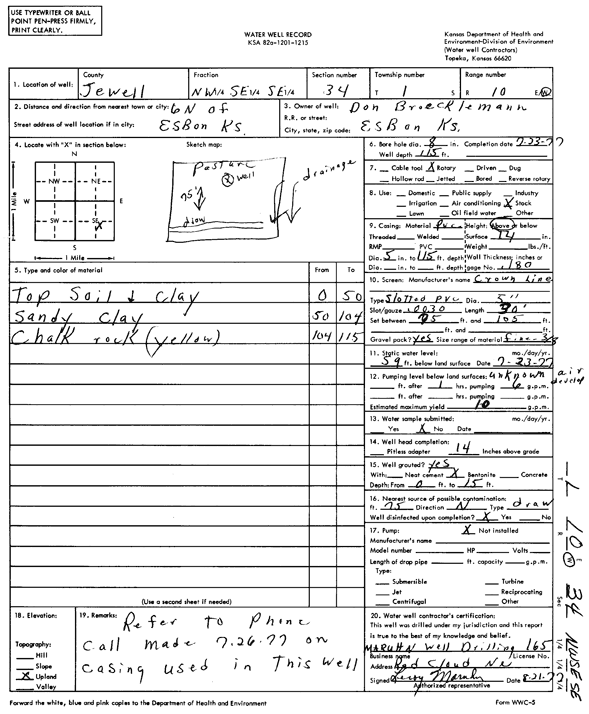 USE TYPEWRITER OR BALL
POINT PEN-PRESS FIRMLY,
PRINT CLEARLY.
WATER WELL RECORD
KSA 82a-1201-1215
Kansas Department of Health and
Environment-Division of Environment
(Water well Contractors)
Topeka, Kansas 66620
1. Location of well: County Jewell Fraction NW1/4 SE1/4 SE1/4 Section number 34 Township number T 1 S Range number R 10 E/W
2. Distance and direction from nearest town or city: 6N of
Street address of well location if in city: ESBon Ks.
3. Owner of well: Don Broecklemann
R.R. or street:
City, state, zip code: ESBon Ks.
4. Locate with "X" in section below:
N
NW NE
W E
SW SE
X
S
1 Mile
1 Mile
Sketch map:
Pasture
X well
75'
draw
drainage
6. Bore hole dia. 8 in. Completion date 7-23-77
Well depth 115 ft.
7. Cable tool X Rotary Driven Dug
Hollow rod Jetted Bored Reverse rotary
8. Use: Domestic Public supply Industry
Irrigation Air conditioning X Stock
Lawn Oil field water Other
9. Casing: Material PVC Height: Above or below
Threaded Welded Surface 14 in.
RMP PVC Weight lbs./ft.
Dia. 5 in. to 115 ft. depth Wall Thickness: inches or
Dia. in. to ft. depth gage No. .180
5. Type and color of material From To
Top Soil & Clay 0 50
Sandy Clay 50 104
Chalk rock (yellow) 104 115
10. Screen: Manufacturer's name Crown Line
Type Slotted PVC Dia. 5"
Slot/gauze .0030 Length
Set between and 105 ft.
ft. and ft.
Gravel pack? yes Size range of material
11. Static water level: mo./day/yr.
59 ft. below land surface Date 7-23-77
12. Pumping level below land surfaces: unknown
ft. after 1 hrs. pumping 6 g.p.m.
ft. after hrs. pumping g.p.m.
Estimated maximum yield 10 g.p.m.
air
develop
13. Water sample submitted: mo./day/yr.
Yes X No Date
14. Well head completion:
Pitless adapter 14 Inches above grade
15. Well grouted? yes
With: Neat cement X Bentonite Concrete
Depth: From 0 ft. to 15 ft.
16. Nearest source of possible contamination:
ft. 75 Direction N Type draw
Well disinfected upon completion? X Yes No
17. Pump: X Not installed
Manufacturer's name
Model number HP Volts
Length of drop pipe ft. capacity g.p.m.
Type:
Submersible Turbine
Jet Reciprocating
Centrifugal Other
(Use a second sheet if needed)
18. Elevation:
Topography:
Hill
Slope
X Upland
Valley
19. Remarks: Refer to Phone
Call made 7-26-77 on
casing used in This Well
20. Water well contractor's certification:
This well was drilled under my jurisdiction and this report
is true to the best of my knowledge and belief.
MARUHN Well Drilling 165
Business name License No.
Address Red Cloud Ne
Signed Date 8-21-77
Authorized representative
T 1 R 10 W Sec 34 1/4 1/4 1/4 NW SE SE
Forward the white, blue and pink copies to the Department of Health and Environment
Form WWC-5